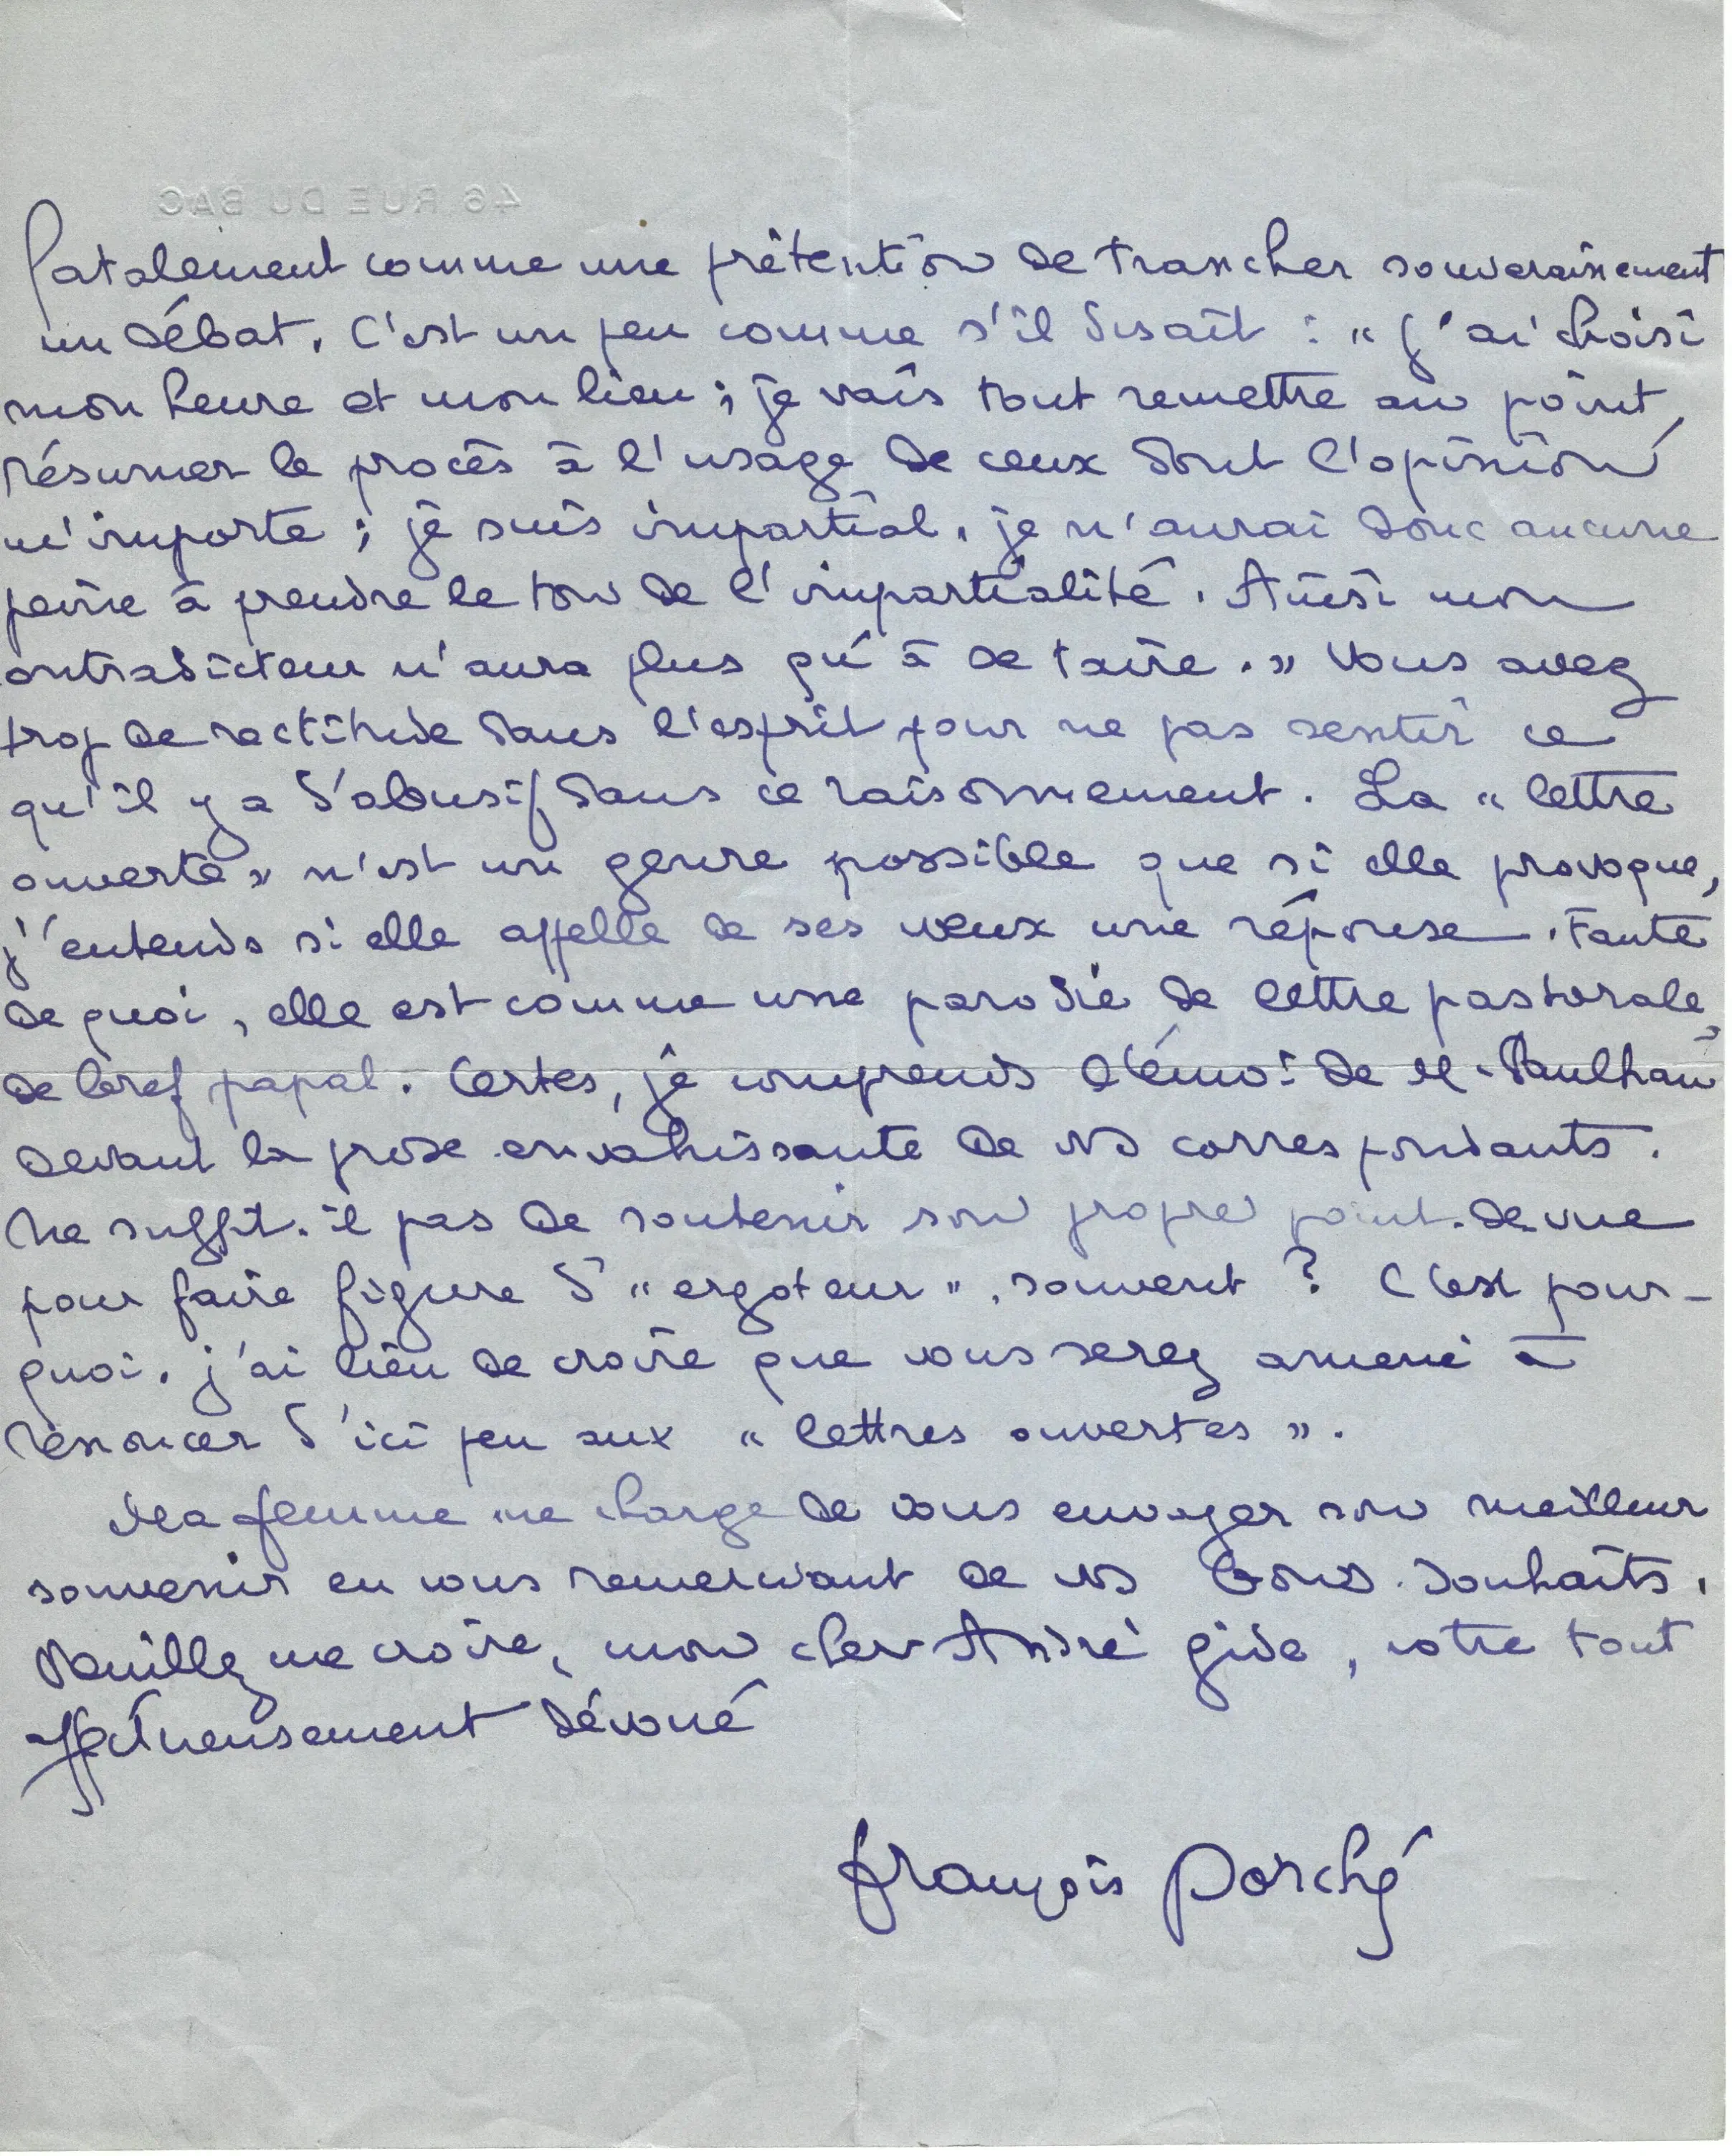 46 RUE DU BAC
fatalement comme une prétention de trancher souverainement
un débat. C'est un peu comme s'il disait : « J'ai choisi
mon heure et mon lieu ; je vais tout remettre au point,
résumer le procès à l'usage de ceux dont l'opinion
m'importe ; je suis impartial, je n'aurai donc aucune
peine à prendre le ton de l'impartialité. Ainsi mon
contradicteur n'aura plus qu'à se taire. » Vous avez
trop de rectitude dans l'esprit pour ne pas sentir ce
qu'il y a d'abusif dans ce raisonnement. La « lettre
ouverte » n'est un genre possible que si elle provoque,
j'entends si elle appelle de ses vœux une réponse. Faute
de quoi, elle est comme une parodie de lettre pastorale,
de bref papal. Certes, je comprends l'émoi de M. Paulhan
devant la prose envahissante de vos correspondants.
Ne suffit-il pas de soutenir son propre point de vue
pour faire figure d'« ergoteur », souvent ? C'est pour-
quoi, j'ai lieu de croire que vous serez amené à
renoncer d'ici peu aux « lettres ouvertes ».
Ma femme me charge de vous envoyer son meilleur
souvenir en vous remerciant de vos bons souhaits.
Veuillez me croire, mon cher André Gide, votre tout
affectueusement dévoué
François Porché